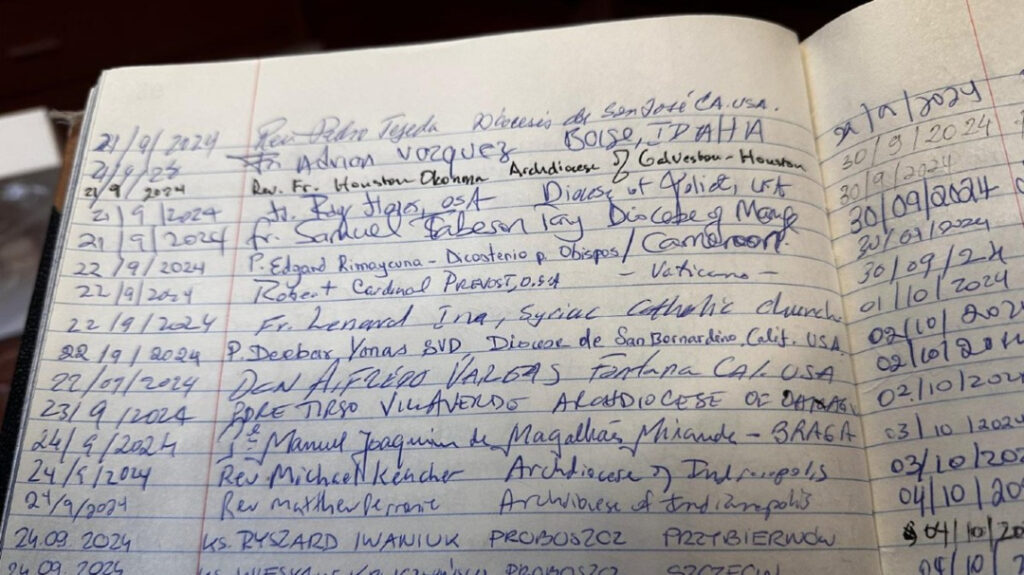 21/9/2024 Rev. Pedro Tejeda Diocesis de San José CA. USA.
Fr. Adrian Vazquez BOISE, IDAHA
21/9/2024 Rev. Fr. Houston Okonma Archdiocese of Galveston-Houston
21/9/2024 Fr. Ray Flores, OSA Diocese of Joliet, USA
21/9/2024 Fr. Samuel Diocese of
22/9/2024 P. Edgard Rimaycuna - Dicasterio p. Obispos / Cameroon.
22/9/2024 Robert Cardinal PREVOST, O.S.A - Vaticano -
22/9/2024 Fr. Lenard Ina, Syriac Catholic Church
22/9/2024 P. Deobar, Yonas SVD Diocese de San Bernardino, Calif. USA.
22/09/2024 DCN ALFREDO VARGAS Fontana CAL USA
23/9/2024 PDRE TIRSO VILLAVERDE ARCHDIOCESE OF
24/9/2024 Pe Manuel Joaquim de Magalhães Miranda - BRAGA
24/9/2024 Rev Michael Keucher Archdiocese of Indianapolis
24/9/2024 Rev Matthew Perronie Archdiocese of Indianapolis
24.09.2024 KS. RYSZARD IWANIUK PROBOSZCZ PRZYBIERNÓW
24.09.2024 PROBOSZCZ SZCZECIN
30/9/2024
30/9/2024
30/09/2024
30/09/2024
30/09/24
01/10/2024
02/10/202
02/10/20
02/10/2024
03/10/2024
03/10/202
04/10/20
04/10/20